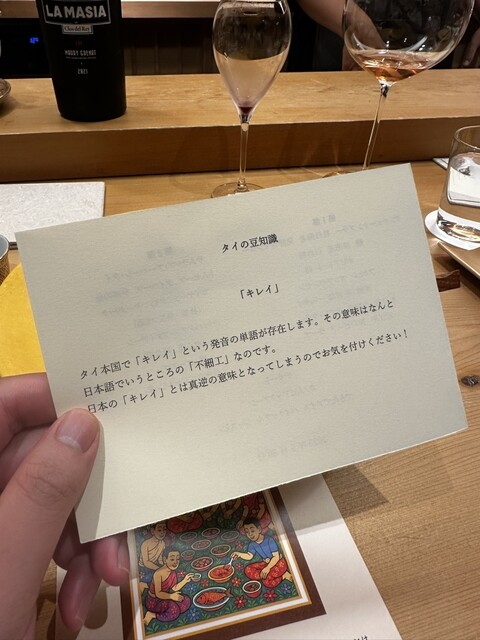 LA MASIA
Clos del Rey
MOURY GRENAT
2021
タイの豆知識
「キレイ」
タイ本国で「キレイ」という発音の単語が存在します。その意味はなんと
日本語でいうところの「不細工」なのです。
日本の「キレイ」とは真逆の意味となってしまうのでお気を付けください！